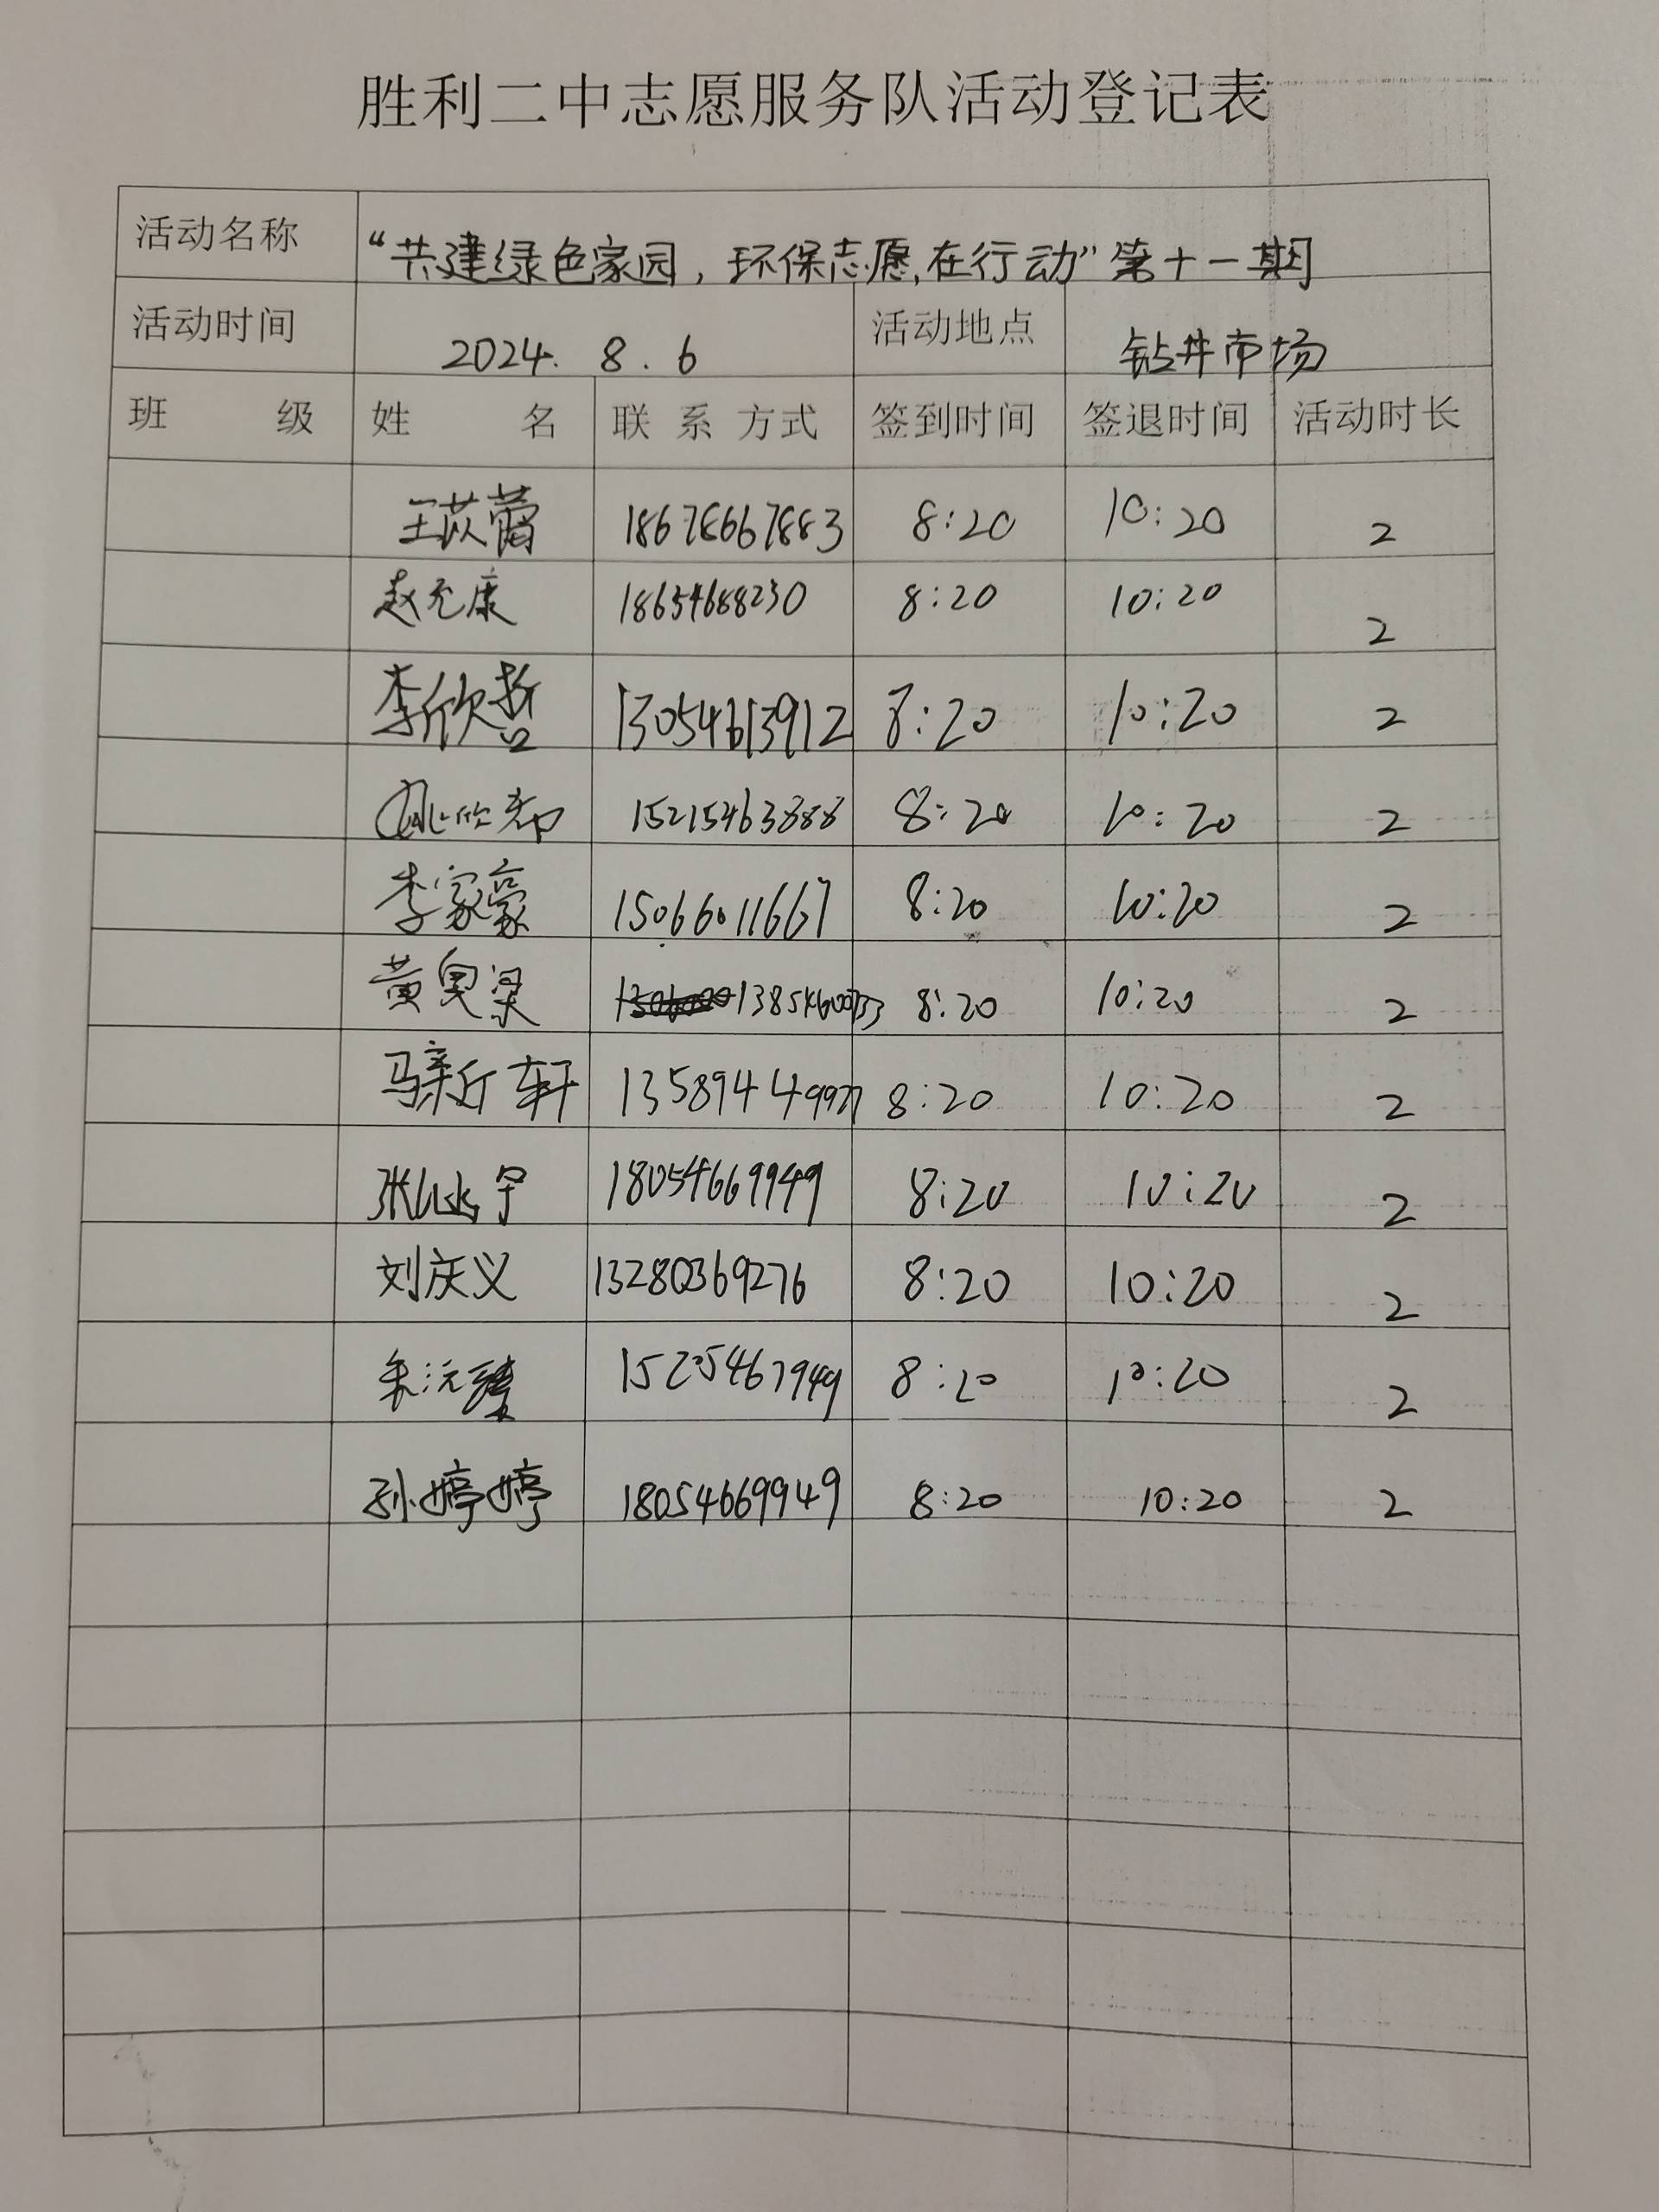 胜利二中志愿服务队活动登记表
活动名称 “共建绿色家园，环保志愿，在行动”第十一期
活动时间 2024.8.6 活动地点 钻井市场
班 级 姓 名 联系方式 签到时间 签退时间 活动时长
王苡蕾 18678667883 8:20 10:20 2
赵元康 18654688230 8:20 10:20 2
李欣哲 13054613912 8:20 10:20 2
15215463888 8:20 10:20 2
李家豪 15066011667 8:20 10:20 2
黄奥梁 13854600733 8:20 10:20 2
马新轩 13589449927 8:20 10:20 2
张 宇 18054669949 8:20 10:20 2
刘庆义 13280369276 8:20 10:20 2
朱沅臻 15205467949 8:20 10:20 2
孙婷婷 18054669949 8:20 10:20 2